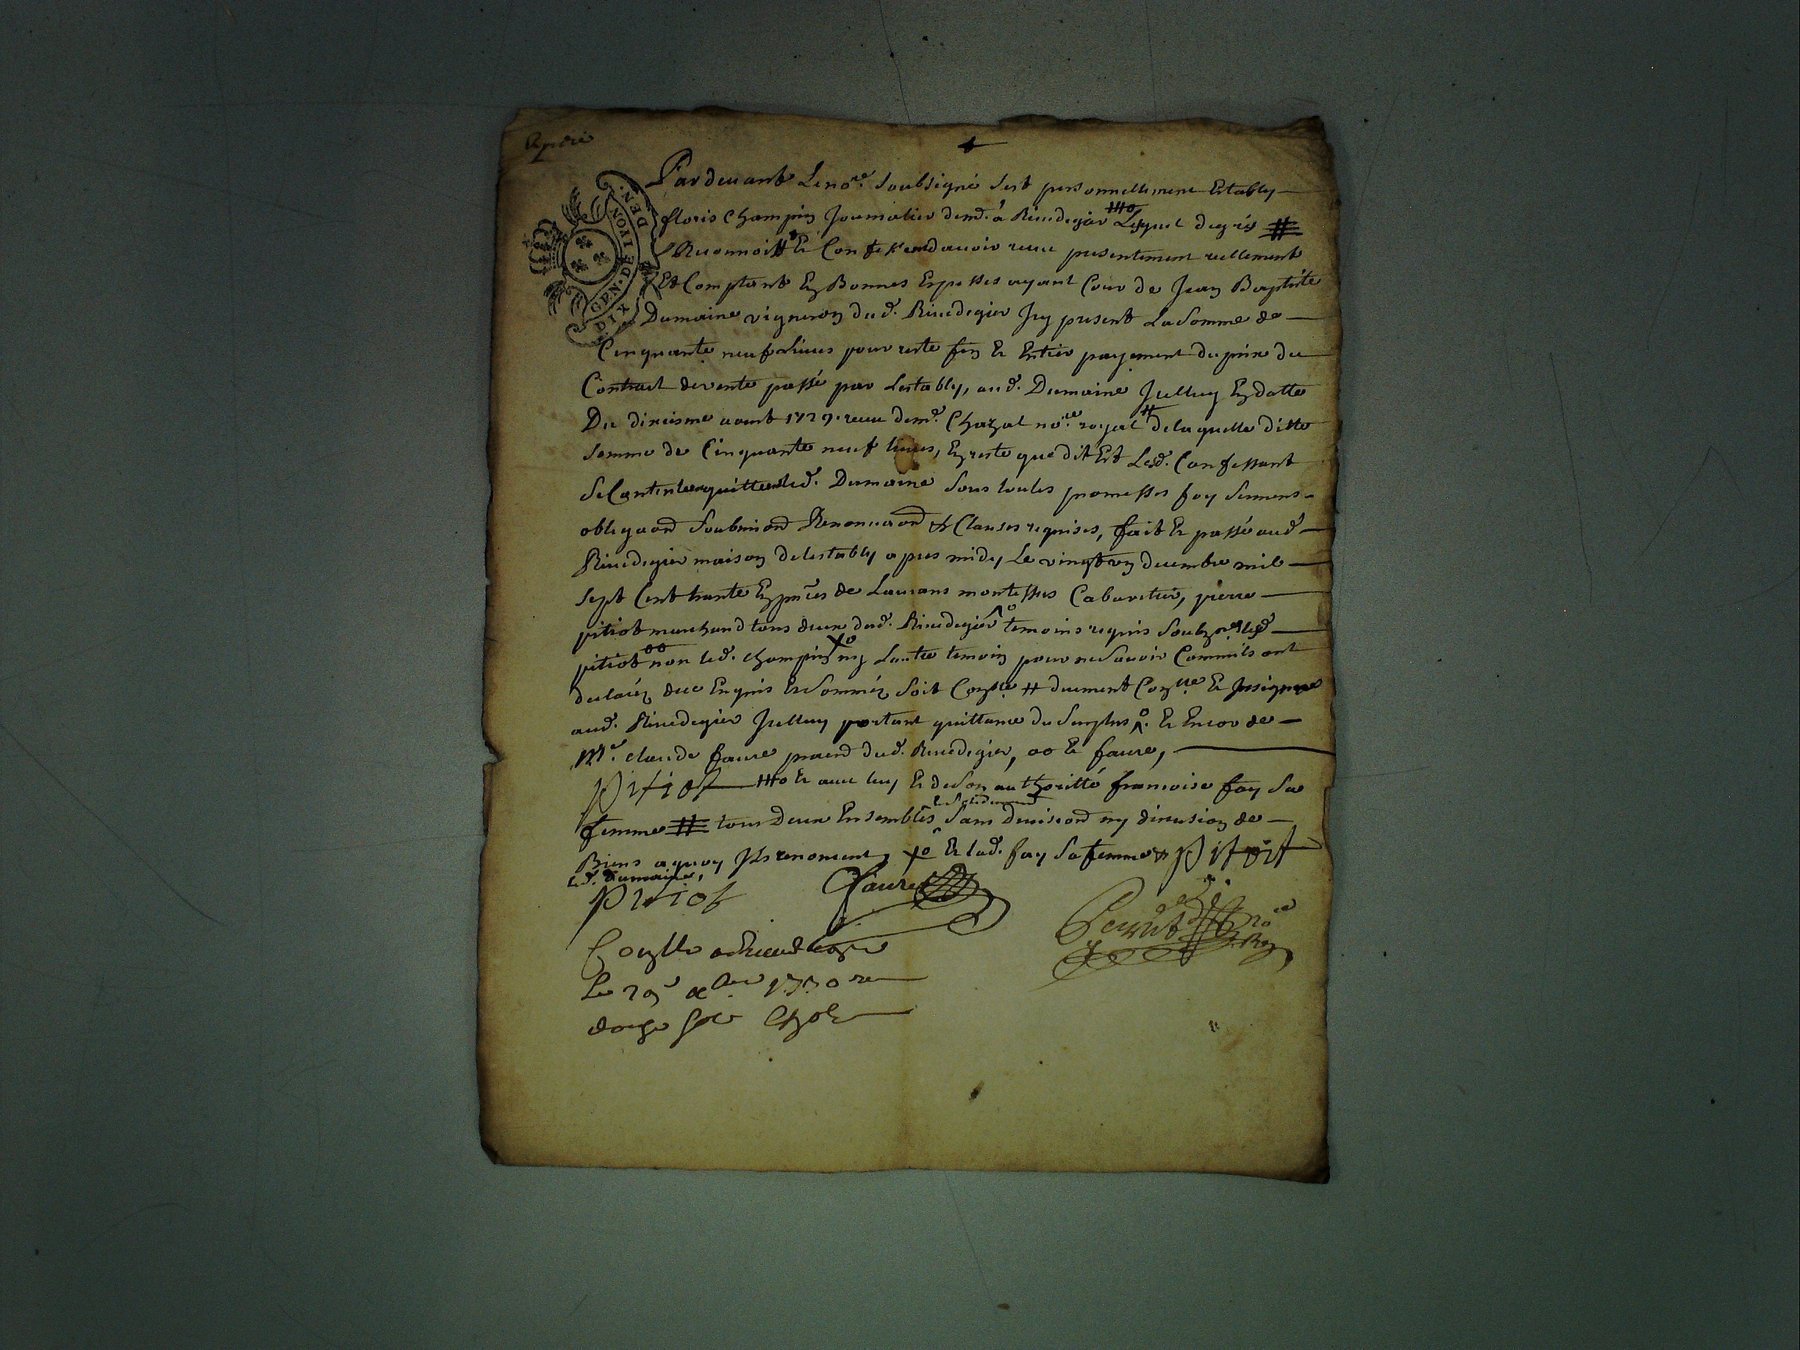 Par devant Le no.re soubsigné s'est personnellement Estably
floris Champin Journalier dem.t à Rivedegier Lequel degrés
Reconnoist Et Confesse avoir receu presentement reellement
Et Comptant En Bonnes Espesses ayant Cour de Jean Baptiste
Dumaine vigneron dud. Rivedegier Jcy present La Somme de
Cinquante neuf livres pour reste fin Et Entier payement du prix du
Contract de vente passé par Lestably, aud. Dumaine Jcelluy En datte
Du dixiesme aoust 1729. receu de m.e Chazal no.re royal # de laquelle ditte
somme de Cinquante neuf livres, En reste que dit Est Led. Confessant
se Contente quitte led. Dumaine sous toutes promesses foy serment
obligaond Soubmiond Renonciaond & Clauses requises, fait Et passé aud.
Rivedegier maison de lestably apres midy Le vingt un decembre mil
sept Cent trante En pn̄ces de Laurans montessus Cabaretier, pierre
pitiot marchand tous deux dud. Rivedegier temoins requis Soubz.nés led.
pitiot oo non led. champin ny Lautre temoin pour ne Scavoir Comme ils ont
declaré de ce Enquis Et Sommés Soit Con.llé # duement Con.llé Et Jnsigné
aud. Rivedegier Jcelluy portant quittance du Surplus. Et Encor de
M.e claude faure dud. Rivedegier, oo Et faure,
Pitiot o Et avec luy Et de Son authorité francoise foy Sa
femme # tous Deux Ensembles Sans division ny discusion de
& Solidairement
Biens a quoy Jls renoncent, Xo Et lad. foy Sa femme Pitiot
led. dumaine,
Pitiot Faure
Con.llé a Rivedegier
Le 29.e xbre 1730
douze sols
GEN. DE LYON.
DIX DEN.